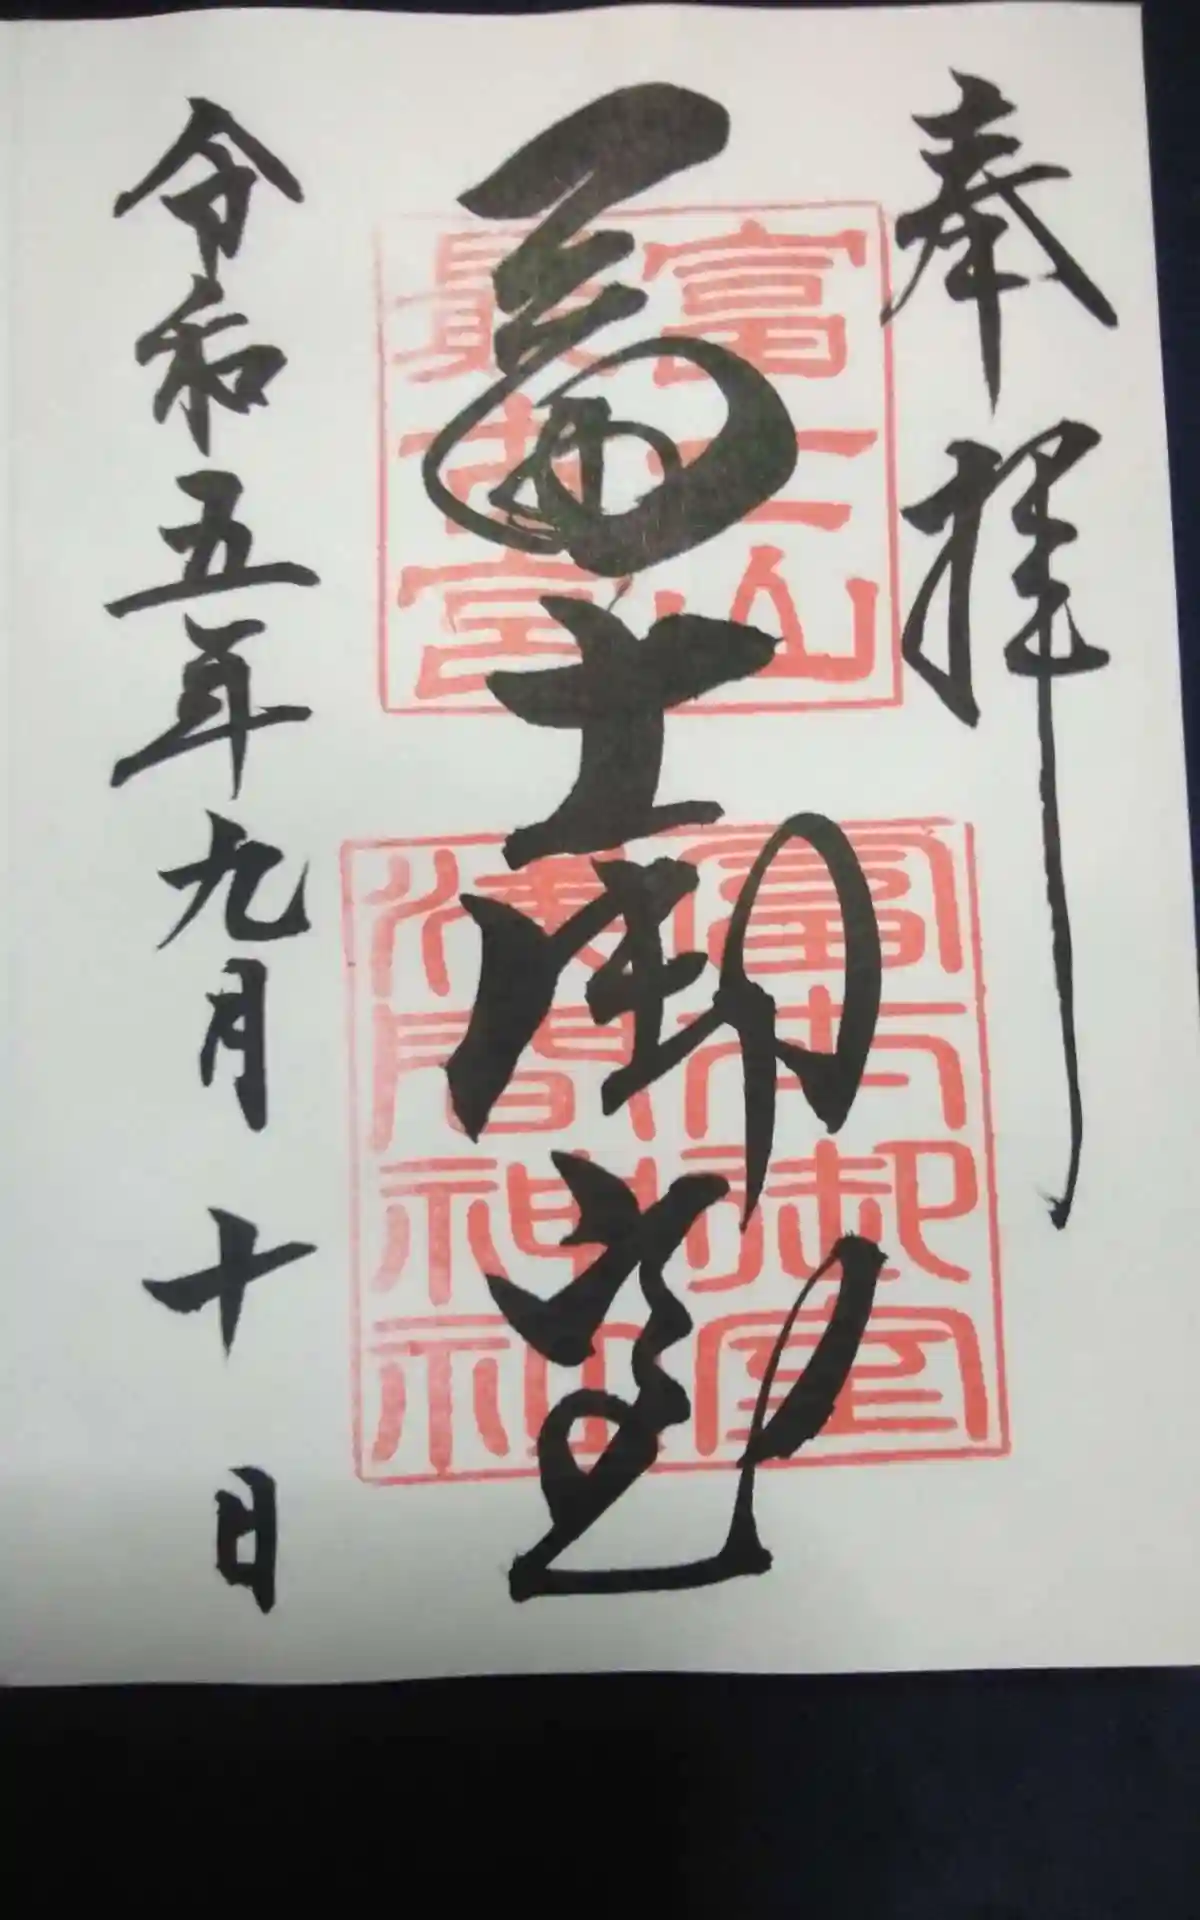 奉拝
富士御室
富士山
最古宮
富士御室
浅間神社
令和五年九月十日